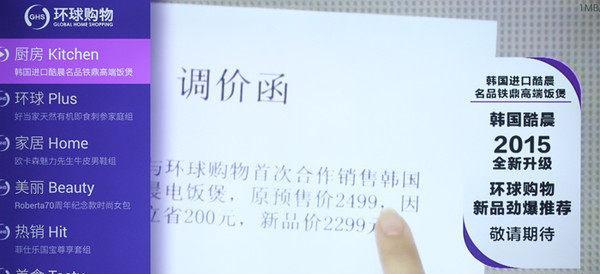 GHS 环球购物
GLOBAL HOME SHOPPING
厨房 Kitchen
韩国进口酷晨名品铁鼎高端饭煲
环球 Plus
好当家天然有机即食刺参家庭组
家居 Home
欧卡森魅力先生牛皮男鞋组
美丽 Beauty
Roberta70周年纪念款时尚女包
热销 Hit
菲仕乐国宝尊享套组
美食 Tasty
调价函
与环球购物首次合作销售韩国
晨电饭煲，原预售价2499，因
立省200元，新品价2299元
1MB
韩国进口酷晨
名品铁鼎高端饭煲
韩国酷晨
2015
全新升级
环球购物
新品劲爆推荐
敬请期待